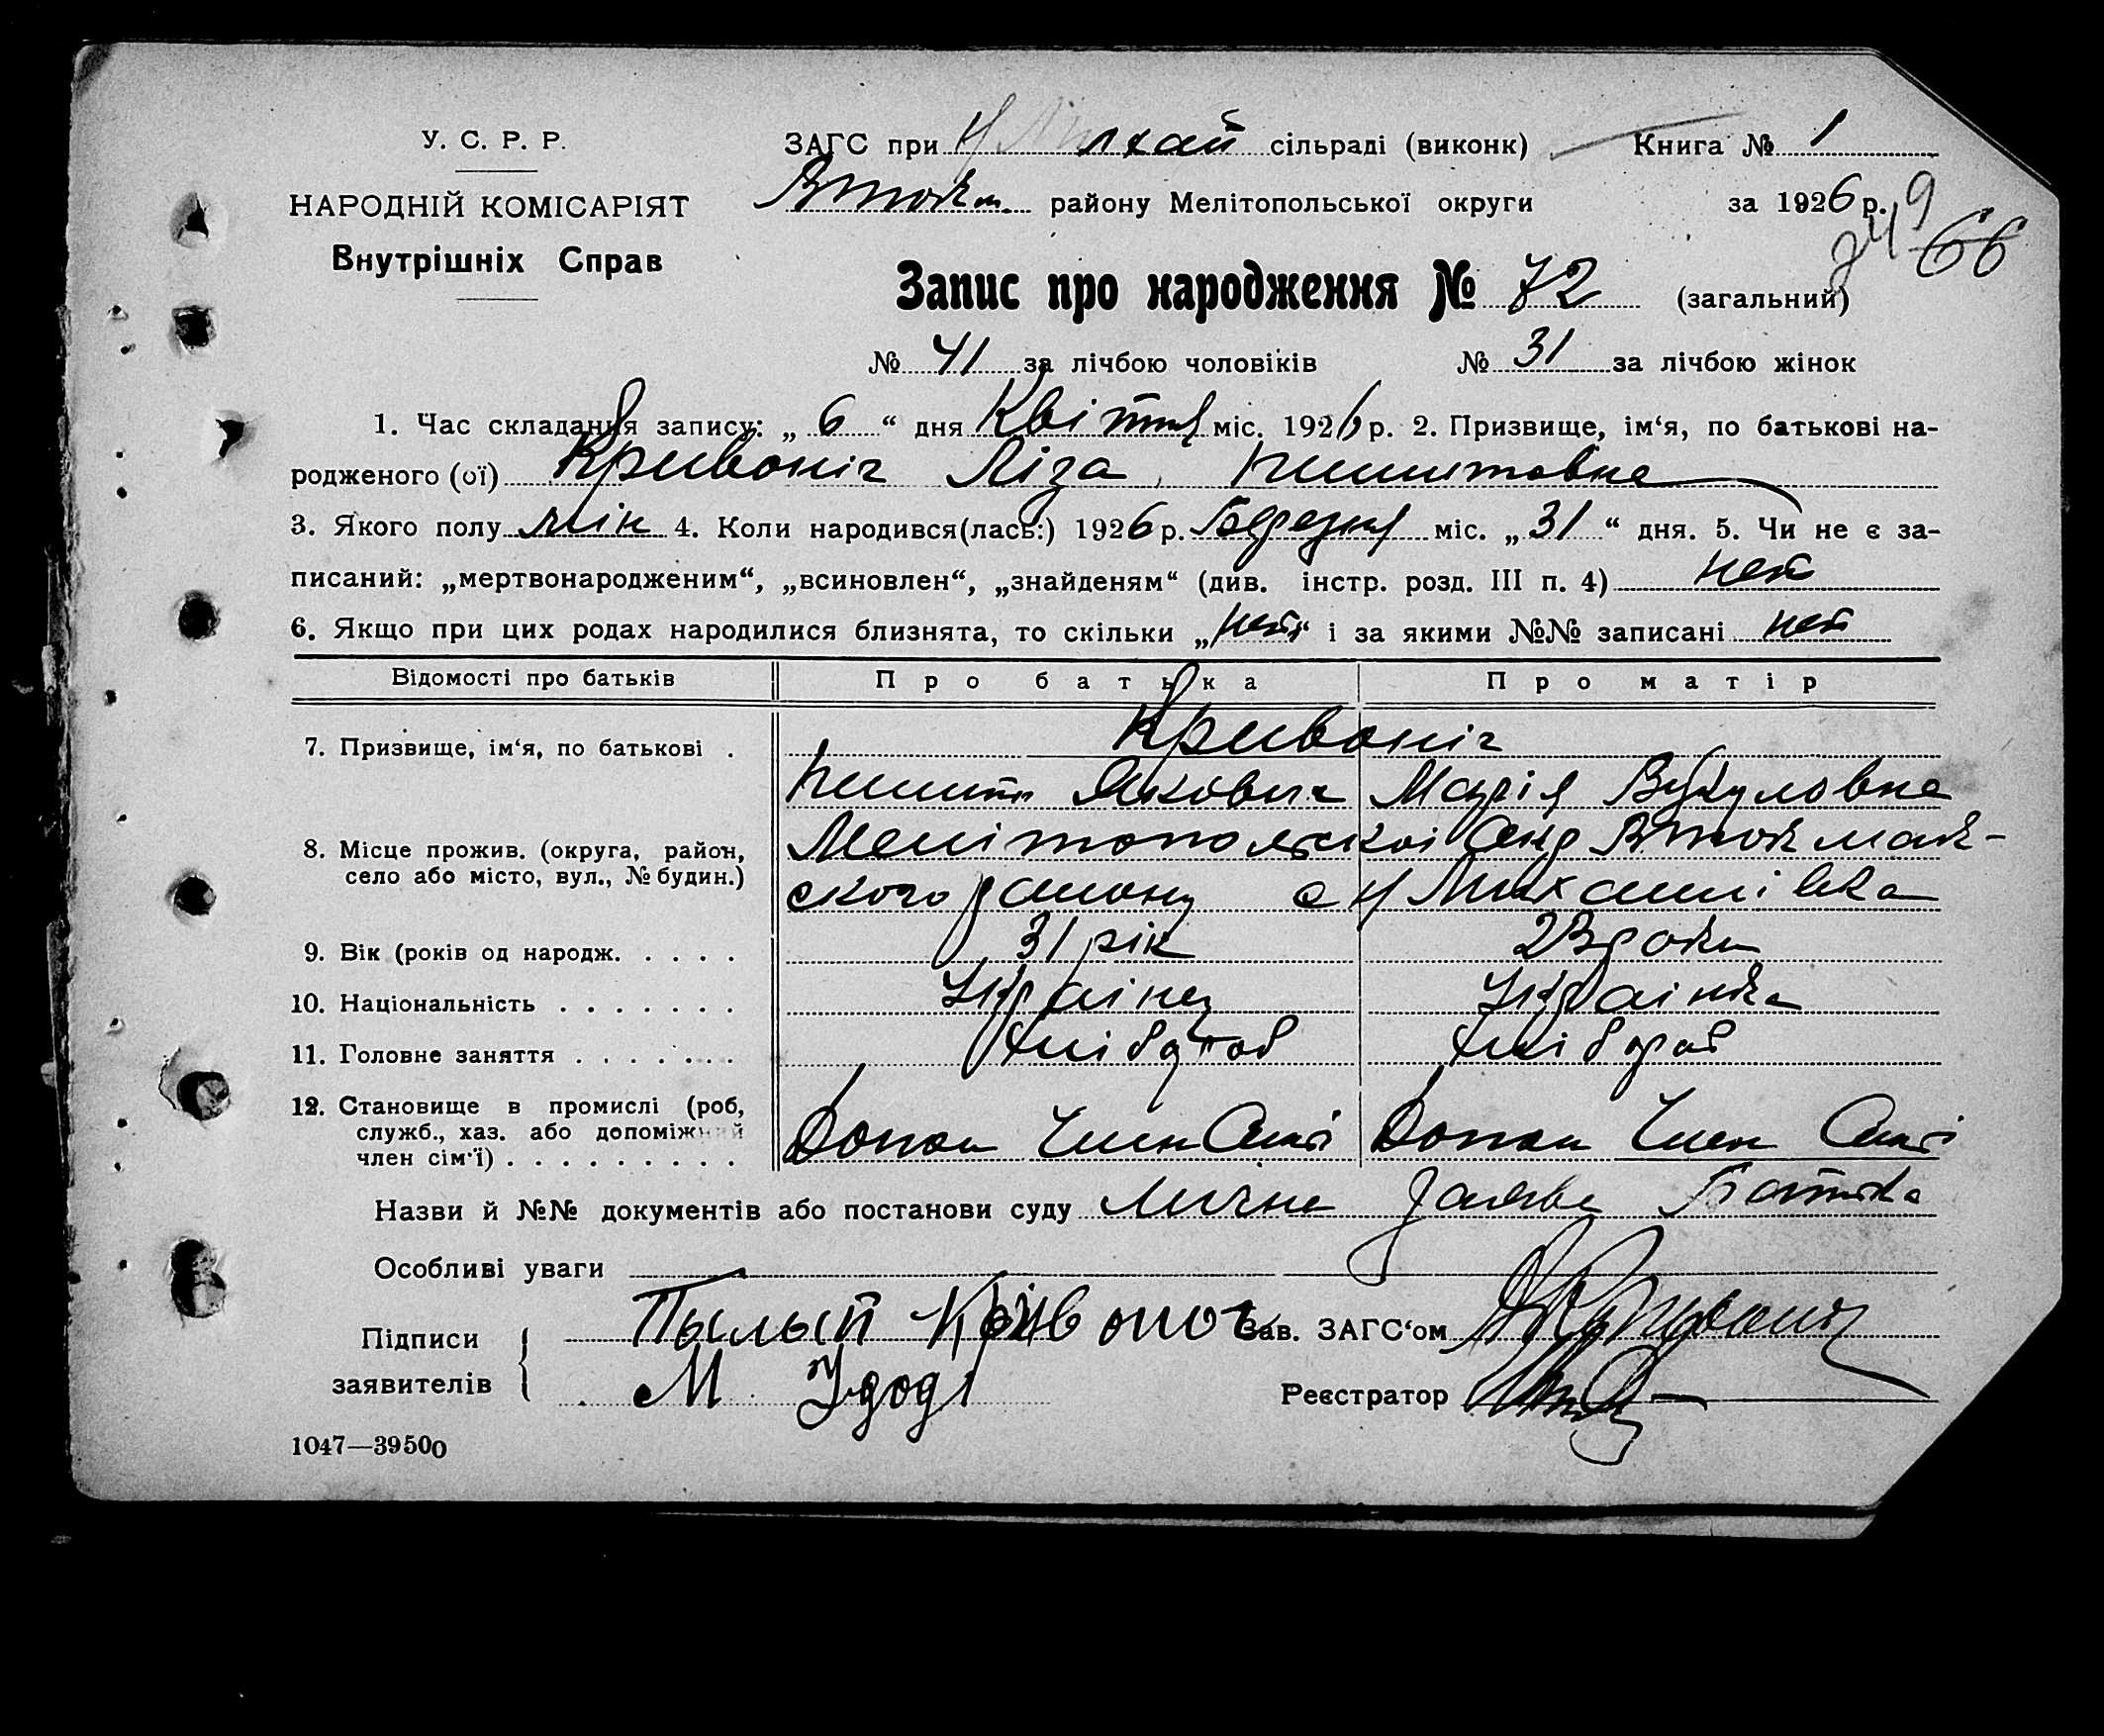 У. С. Р. Р.
НАРОДНІЙ КОМІСАРІЯТ
Внутрішніх Справ
ЗАГС при Н хай сільраді (виконк) Книга № 1
В Ток м. району Мелітопольської округи за 1926 р.
249 66
Запис про народження № 72 (загальний)
№ 41 за лічбою чоловіків № 31 за лічбою жінок
1. Час складання запису: „ 6 “ дня Квітня міс. 1926 р. 2. Призвище, ім‘я, по батькові на-
родженого (ої) Кривоніг Ліза
3. Якого полу жін 4. Коли народився(лась:) 1926 р. Березня міс. „ 31 “ дня. 5. Чи не є за-
писаний: „мертвонародженим“, „всиновлен“, „знайденям“ (див. інстр. розд. III п. 4) нет
6. Якщо при цих родах народилися близнята, то скільки „нет“ і за якими №№ записані нет
Відомості про батьків Про батька Про матір
7. Призвище, ім‘я, по батькові . Кривоніг
Якович Марія Вукуловна
8. Місце прожив. (округа, район, Мелітопольскоі Окр В Ток мак-
село або місто, вул., № будин.) ского району с Н Михайлівка
9. Вік (років од народж. . . . . 31 рік 23 роки
10. Національність . . . . . . . Украінец Украінка
11. Головне заняття . . . . . . . Хлібороб Хлібороб
12. Становище в промислі (роб, служб., хаз. або допоміжний член сім‘ї) . . . . . . . . . Допом Член Сімі Допом Член Сімі
Назви й №№ документів або постанови суду Лична Заява Батька
Особливі уваги
Підписи заявителів Пылып Крывоног Зав. ЗАГС‘ом
М Удод Реєстратор
1047—39500